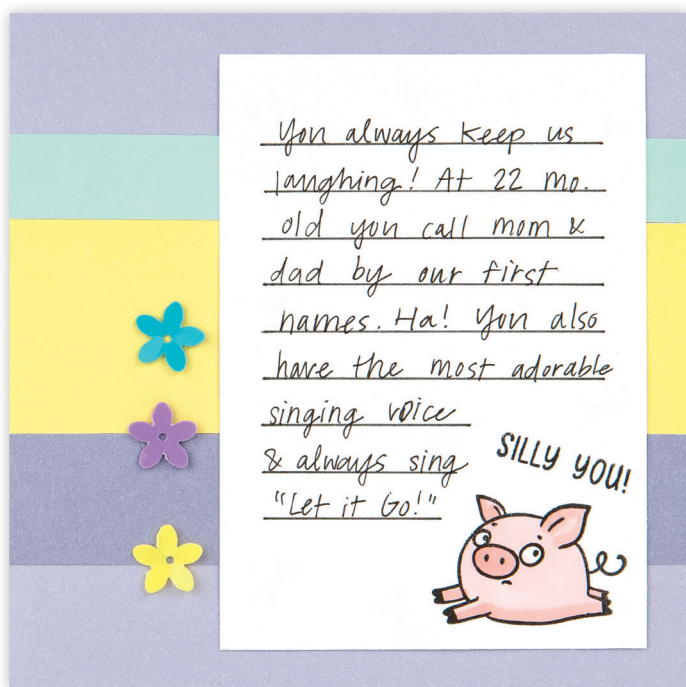 You always keep us
laughing! At 22 mo.
old you call mom &
dad by our first
names. Ha! You also
have the most adorable
singing voice
& always sing
"Let it Go!"
SILLY YOU!